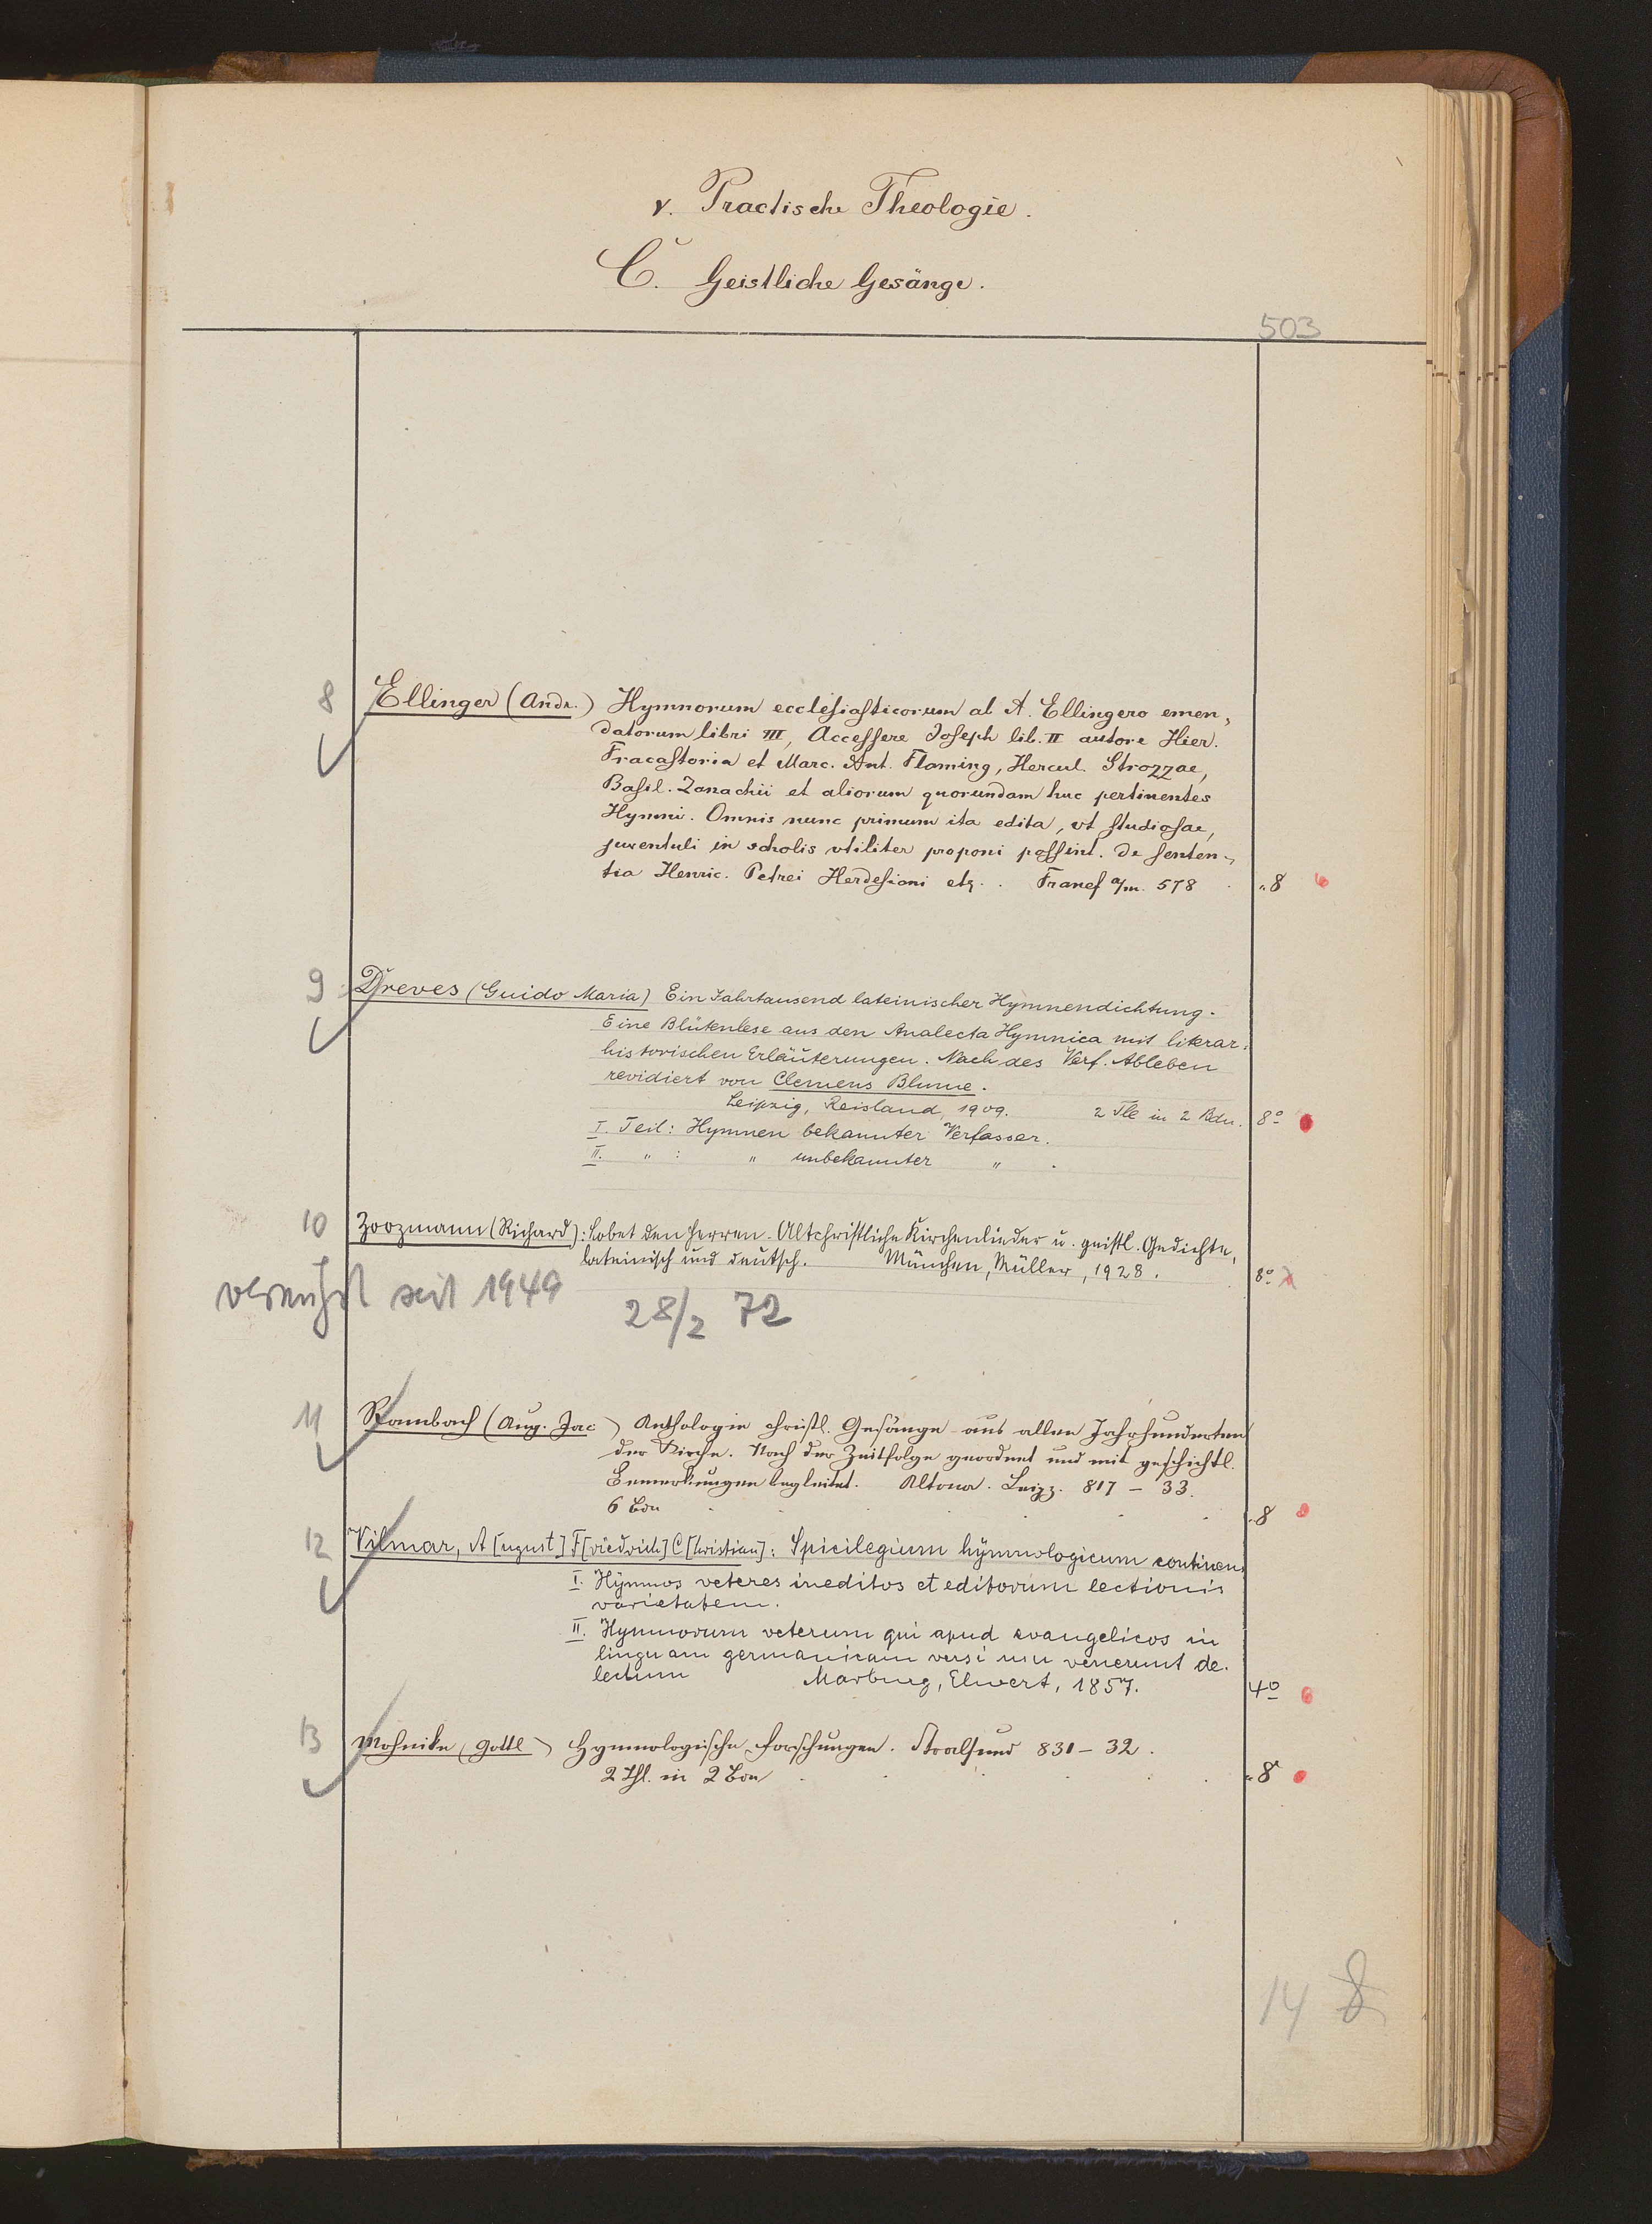 v. Practische Theologie.
C. Geistliche Gesänge.
503
8 Ellinger (Andr.) Hymnorum ecclesiasticorum ab A. Ellingero emen,
datorum libri III, Accessere Joseph lib. II autore Hier.
Fracastoria et Marc. Ant. Flaming, Hercul. Strozzae,
Basil. Zanachii et aliorum quorundam huc pertinentes
Hymni. Omnis nunc primum ita edita, vt studiosae,
juventuti in scholis vtiliter proponi possint. De senten,
tia Henric. Petrei Herdesiani etz. . Francf a/m. 578 . „8
9 Dreves (Guido Maria) Ein Jahrtausend lateinischer Hymnendichtung.
Eine Blütenlese aus den Analecta Hymnica mit literar:
historischen Erläuterungen. Nach des Verf. Ableben
revidiert von Clemens Blume.
Leipzig, Reisland, 1909. 2 Tle in 2 Bdn. 8°
I. Teil: Hymnen bekannter Verfasser.
II. " : " unbekannter " .
10 Zoozmann (Richard): Lobet den Herren. Altchristliche Kirchenlieder u. geistl. Gedichte,
lateinisch und deutsch. München, Müller, 1928. 8°
vermißt seit 1949 28/2 72
11 Rambach (Aug. Jac) Anthologie christl. Gesänge aus allen Jahrhunderten
der Kirche. Nach der Zeitfolge geordnet und mit geschichtl.
Bemerkungen begleitet. Altona. Leipz. 817 – 33.
6 Bde . . . . . . . „8
12 Vilmar, A[ugust] F[riedrich] C[hristian]: Spicilegium hymnologicum continens
I. Hymnos veteres ineditos et editorum lectionis
varietatem.
II. Hymnorum veterum qui apud evangelicos in
linguam germanicam versi usu venerunt de-
lectum Marburg, Elwert, 1857. 4°
13 Mohnike (Gottl) Hymnologische Forschungen. Stralsund 831 – 32.
2 Thl. in 2 Bdn . . . . . . „8
14 8